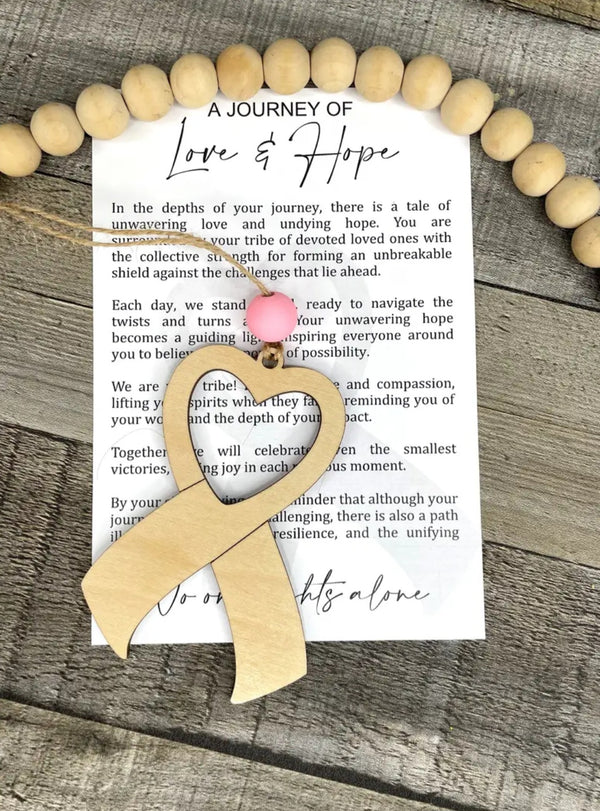 A JOURNEY OF
Love & Hope
In the depths of your journey, there is a tale of
unwavering love and undying hope. You are
surrounded by your tribe of devoted loved ones with
the collective strength for forming an unbreakable
shield against the challenges that lie ahead.
Each day, we stand ready to navigate the
twists and turns Your unwavering hope
becomes a guiding light inspiring everyone around
you to believe of possibility.
We are tribe! and compassion,
lifting your spirits when they reminding you of
your worth and the depth of your impact.
Together we will celebrate even the smallest
victories, joy in each moment.
By your reminder that although your
journey challenging, there is also a path
resilience, and the unifying
No one fights alone